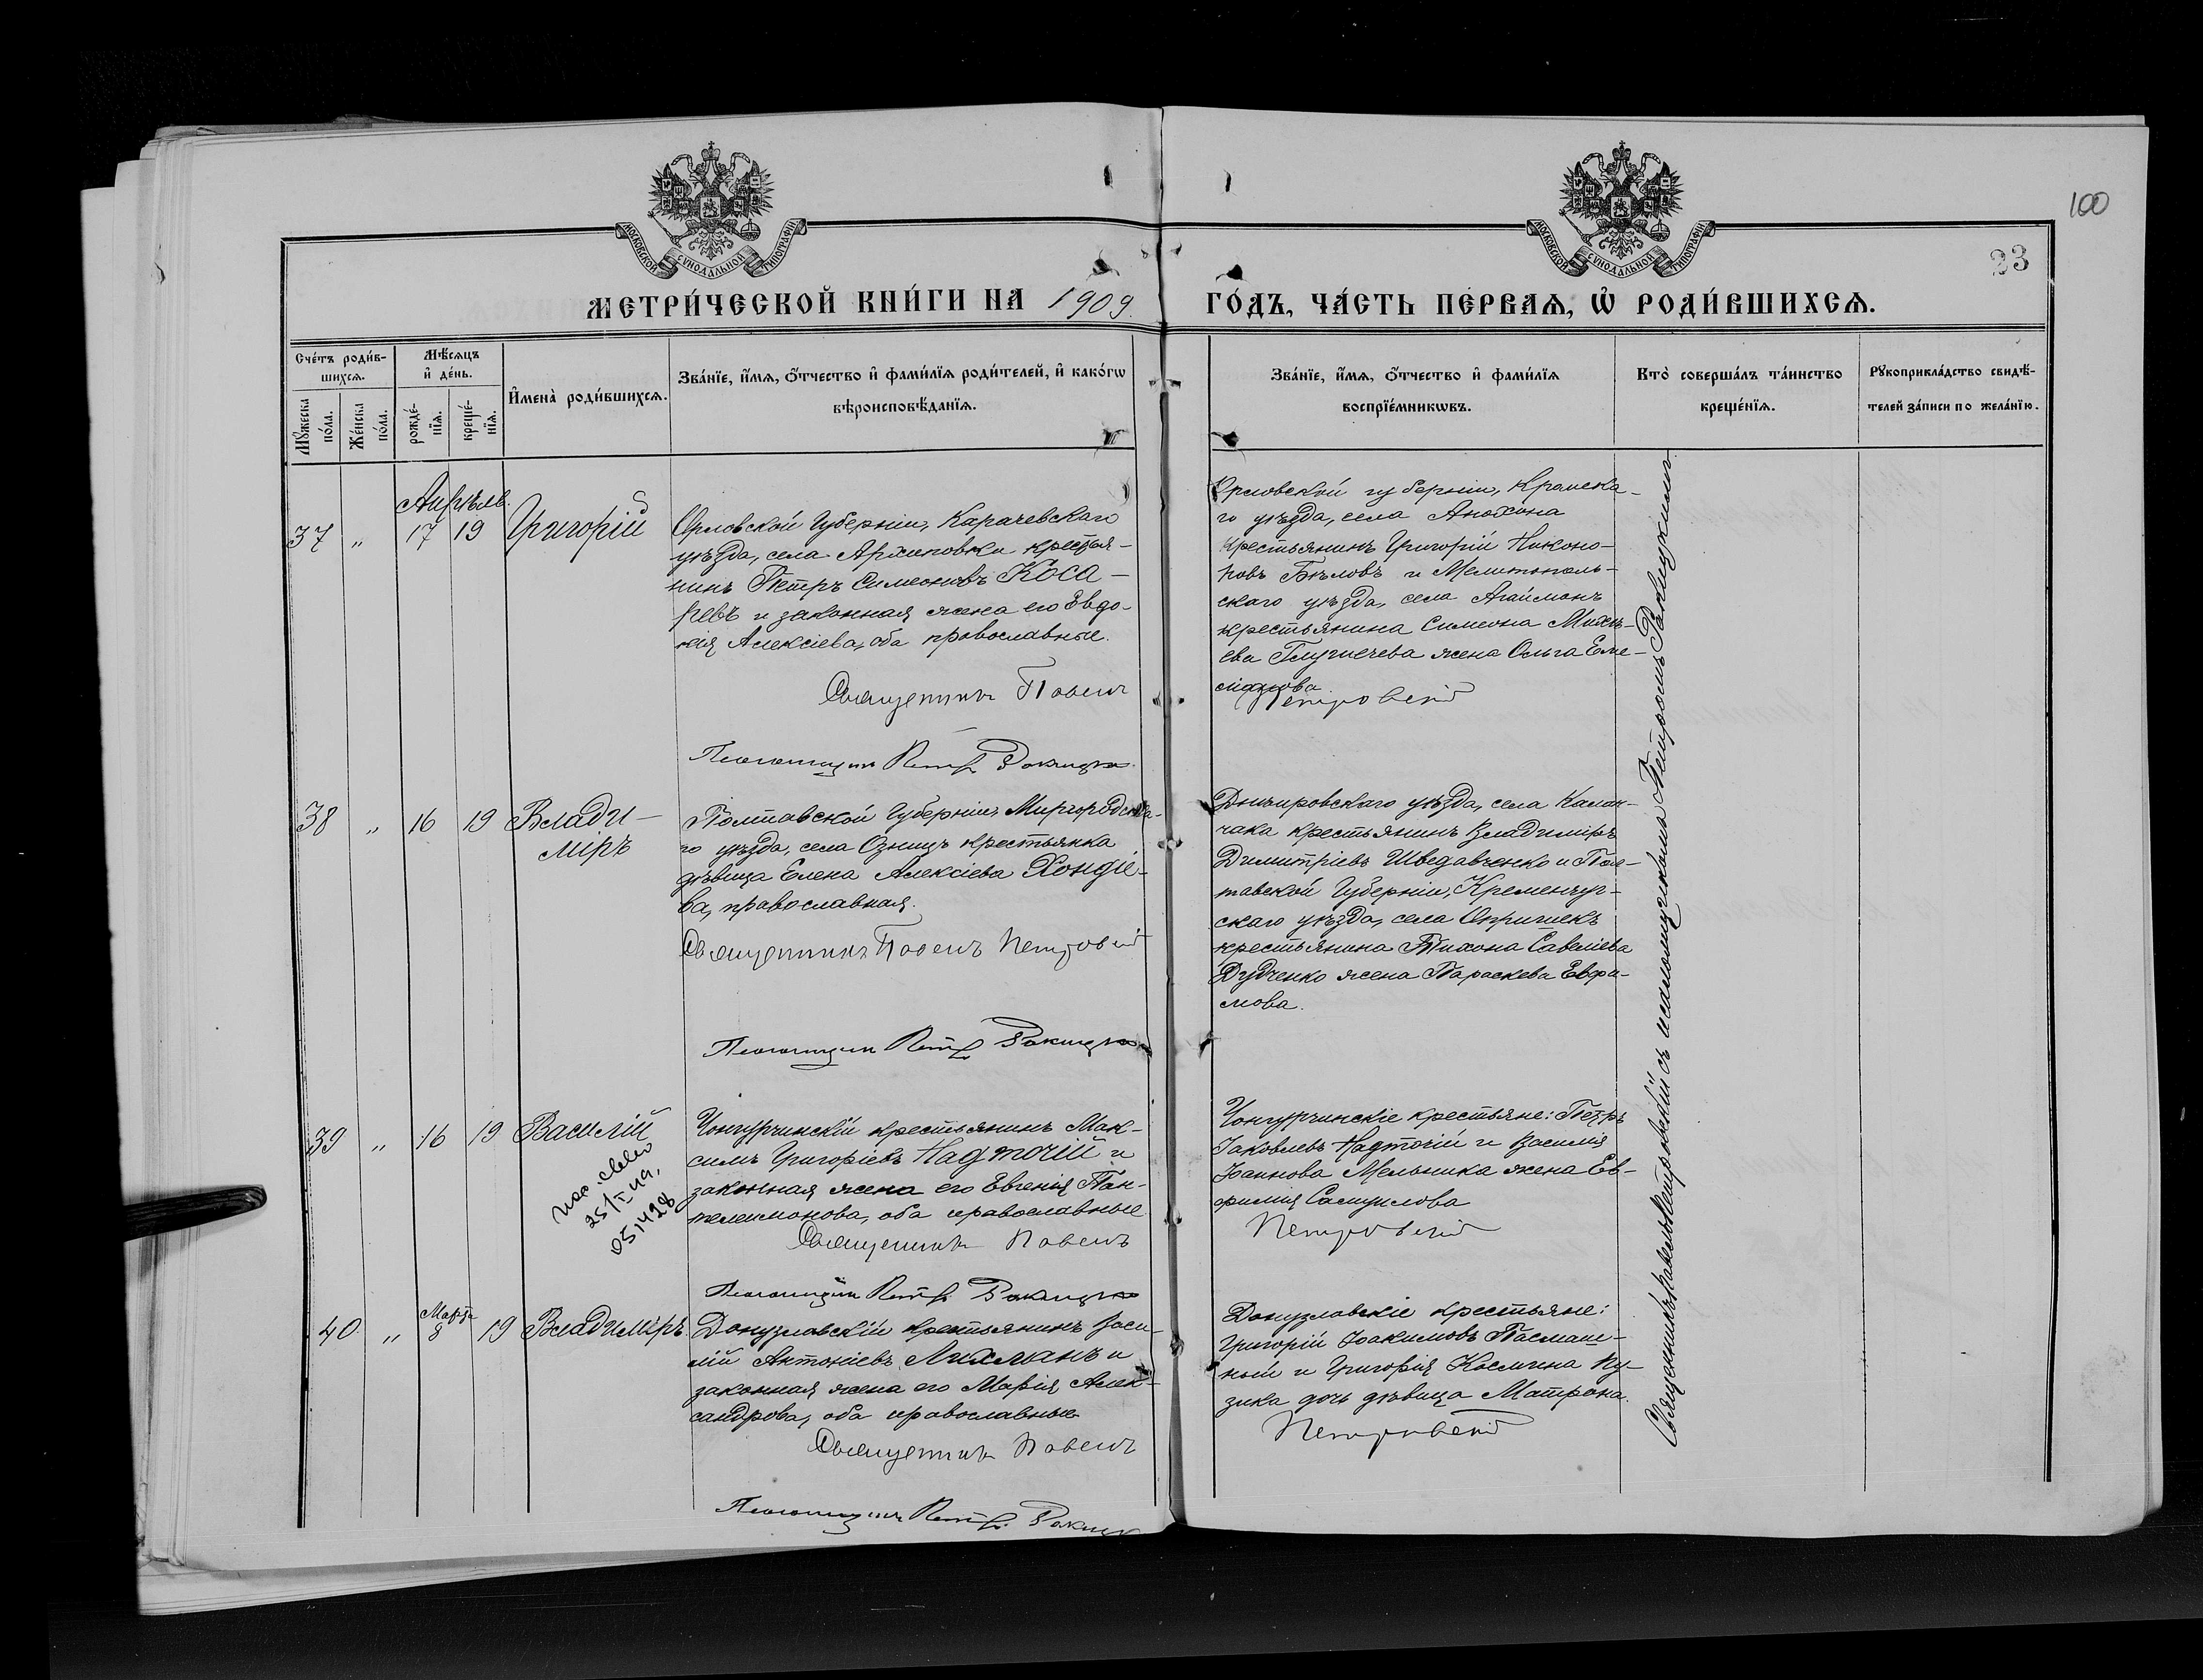 100
23
МОСКОВСКОЙ СѴНОДАЛЬНОЙ ТИПОГРАФІИ
МОСКОВСКОЙ СѴНОДАЛЬНОЙ ТИПОГРАФІИ
МЕТРИ́ЧЕСКОЙ КНИ́ГИ НА 1909 ГО́ДЪ, ЧА́СТЬ ПЕ́РВАѦ, Ѡ҆ РОДИ́ВШИХСѦ.
Сче́тъ роди́в-
шихсѧ.
Мꙋ́жеска
по́ла.
Же́нска
по́ла.
Мѣ́сѧцъ
и҆ де́нь.
рожде́-
нїѧ.
креще́-
нїѧ.
И҆мена̀ роди́вшихсѧ.
Зва́нїе, и҆́мѧ, ѻ҆́тчество и҆ фами́лїѧ роди́телей, и҆ како́гѡ
вѣроисповѣ́данїѧ.
Зва́нїе, и҆́мѧ, ѻ҆́тчество и҆ фами́лїѧ
воспрїе́мникѡвъ.
Кто̀ соверша́лъ та́инство
креще́нїѧ.
Рꙋкоприкла́дство свидѣ́-
телей за́писи по жела́нїю.
Апрѣль.
37 " 17 19 Григорій
Орловской губерніи, Карачевскаго
уѣзда, села Архиповки крестья-
нинъ Петръ Симеоновъ Коса-
ревъ и законная жена его Евдо-
кія Алексіева, оба православные.
Священникъ Павелъ
Псаломщик Петр Ракицкій
Орловской губерніи, Кромска-
го уѣзда, села
крестьянинъ Григорій Никоно-
ровъ Бѣловъ и Мелитополь-
скаго уѣзда, села Агайманъ
крестьянина Симеона
ева жена Ольга Еме-
ліанова.
Петровскій
38 " 16 19 Влади-
міръ
Полтавской губерніи, Миргородска-
го уѣзда, села крестьянка
дѣвица Елена Алексіева
ва, православная.
Священникъ Павелъ Петровскій
Псаломщик Петр Ракицкій
Днѣпровскаго уѣзда, села Калан-
чака крестьянинъ Владиміръ
Димитріевъ Шведавченко и Пол-
тавской губерніи, Кременчуг-
скаго уѣзда, села Опришекъ
крестьянина Тихона Савеліева
Дудченко жена Параскева Евфи-
мова.
39 " 16 19 Василій
25/I
051428
Чонгурчинскій крестьянинъ Мак-
симъ Григоріевъ Надточій и
законная жена его Евгенія Пан-
телеимонова, оба православные
Священникъ Павелъ
Псаломщик Петр Ракицкій
Чонгурчинскіе крестьяне: Петръ
Іаковлевъ Надточій и Василія
Іоаннова Мельника жена Ев-
фимія Самуилова
Петровскій
40 " Марта 8 19 Владиміръ
Донузлавскій крестьянинъ Васи-
лій Антоніевъ Лихманъ и
законная жена его Марія Алек-
сандрова, оба православные
Священникъ Павелъ
Псаломщикъ Петр Ракицк
Донузлавскіе крестьяне:
Григорій Іоакимовъ Пасмаш-
ный и Григорія Косьмина Пу-
зика дочь дѣвица Матрона.
Петровскій
Священникъ Павелъ Петровскій съ псаломщикомъ Петромъ Ракицкимъ